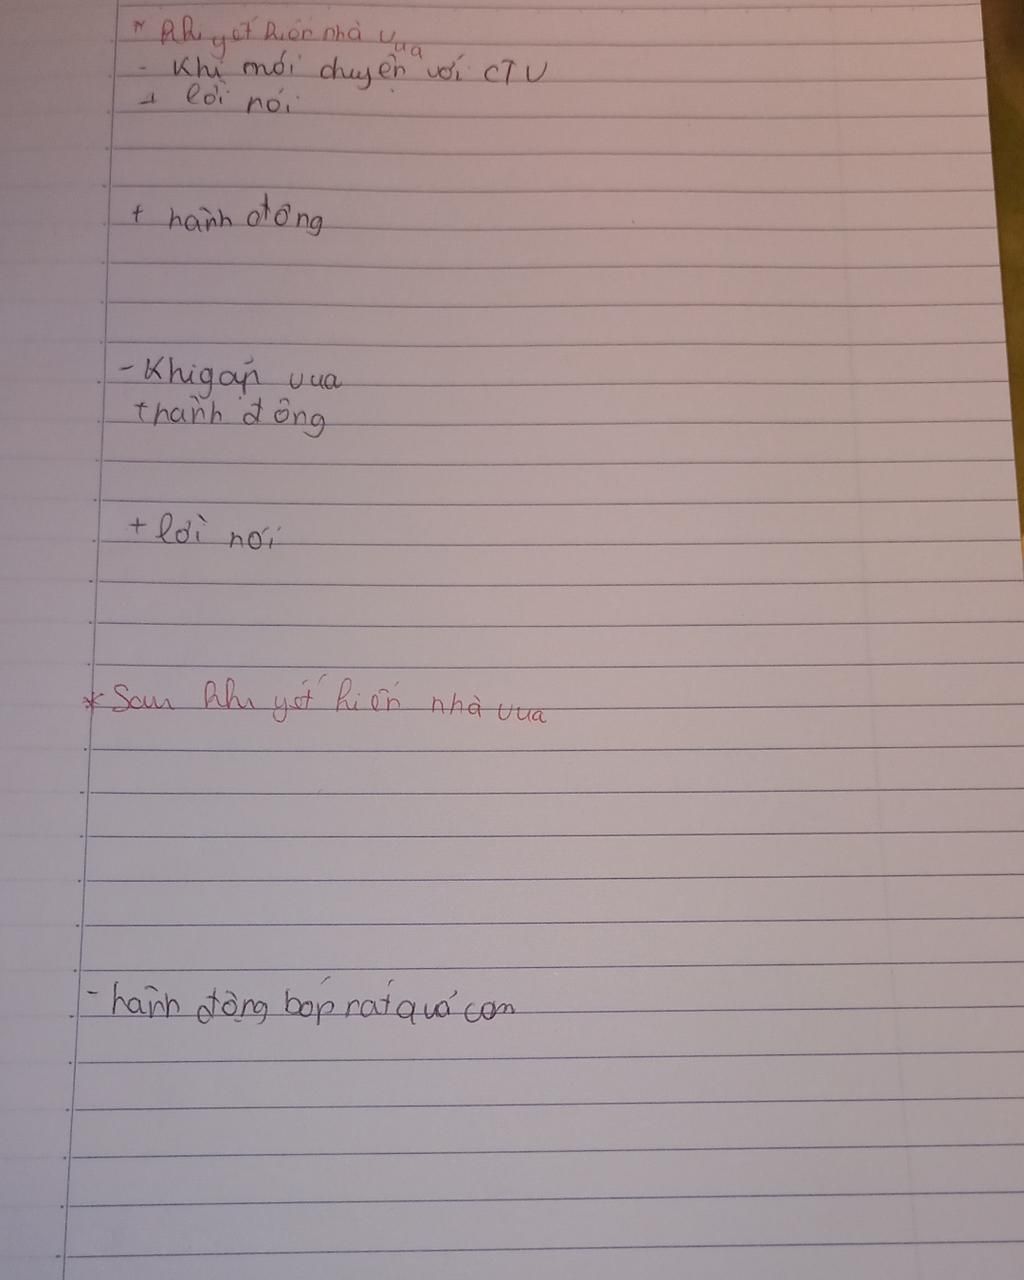 * Khi yết kiến nhà vua
- Khi nói chuyện với CTV
+ lời nói
+ hành động
- Khi gặp vua
+ hành động
+ lời nói
* Sau khi yết kiến nhà vua
- hành động bóp nát quả cam